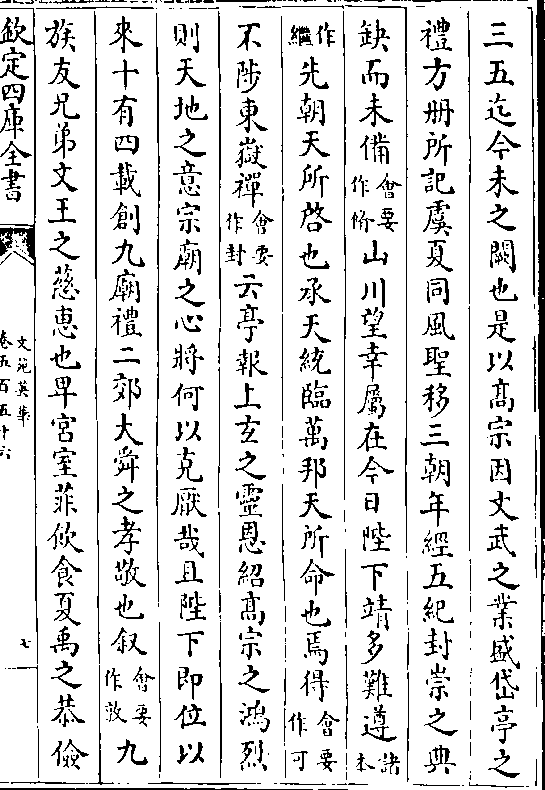 三五迄今未之闕也是以髙宗因文武之業盛岱亭之
禮方册所記虞夏同風聖移三朝年經五紀封崇之典
缺而未備會要作脩山川望幸屬在今日陛下靖多難遵諸本
作繼先朝天所啓也承天統臨萬邦天所命也焉得會要作可
不陟東嶽禪會要作封云亭報上𤣥之靈恩紹髙宗之鴻烈
則天地之意宗廟之心將何以克厭哉且陛下即位以
來十有四載創九廟禮二郊大舜之孝敬也叙會要作敦九
族友兄弟文王之慈惠也卑宫室菲飲食夏禹之恭儉
欽定四庫全書
文苑英華
卷五百五十六
七